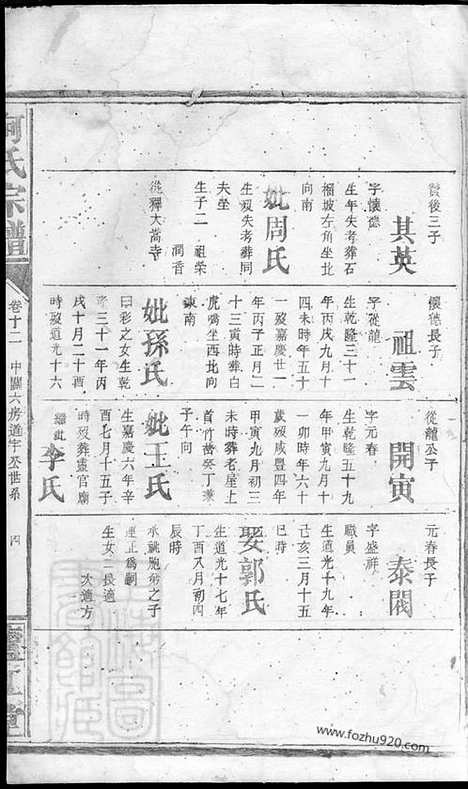 霞後三子
其英
字懷德
生年失考葬石
榴坡左角坐北
向南
妣周氏
生歿失考葬同
夫塋
生子二 祖榮
潤香
從釋大嵩寺
懷德長子
祖雲
字從龍
生乾隆三十一
年丙戌九月十
四未時年五十
一歿嘉慶廿一
年丙子正月二
十三寅時葬白
虎嘴坐西北向
東南
妣孫氏
曰彩之女生乾
隆三十一年丙
戌十月二十酉
時歿道光十六
從龍公子
開寅
字元春
生乾隆五十九
年甲寅九月十
一卯時年六十
一歲歿咸豐四年
甲寅九月初三
未時葬老屋上
首竹𠀋癸丁兼
子午向
妣王氏
生嘉慶六年辛
酉七月十五子
時歿葬靈官廟
繼妣
李氏
元春長子
泰閣
字盛祥
職員
生道光十九年
己亥三月十五
巳時
娶郭氏
生道光十七年
丁酉八月初四
辰時
承祧胞弟之子
運正為嗣
生女二長適
次適方
何氏宗譜
卷十二
中關六房道宇公世系
四
www.fozhu920.com